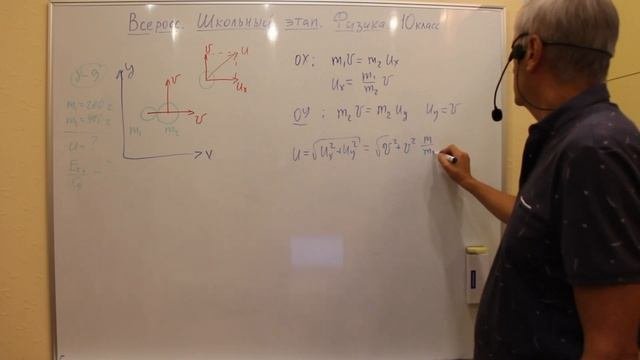 Всеросс. Школьный этап. Физика 10 класс
y
v
v
m₁
m₂
V
v
U
Uₓ
m₁ =
m₂ =
U = ?
OX: m₁v = m₂ Uₓ
Uₓ = m₁/m₂ v
OY: m₂ v = m₂ Uy Uy = v
U = √(Uₓ² + Uy²) = √(v² + v² m/m₂